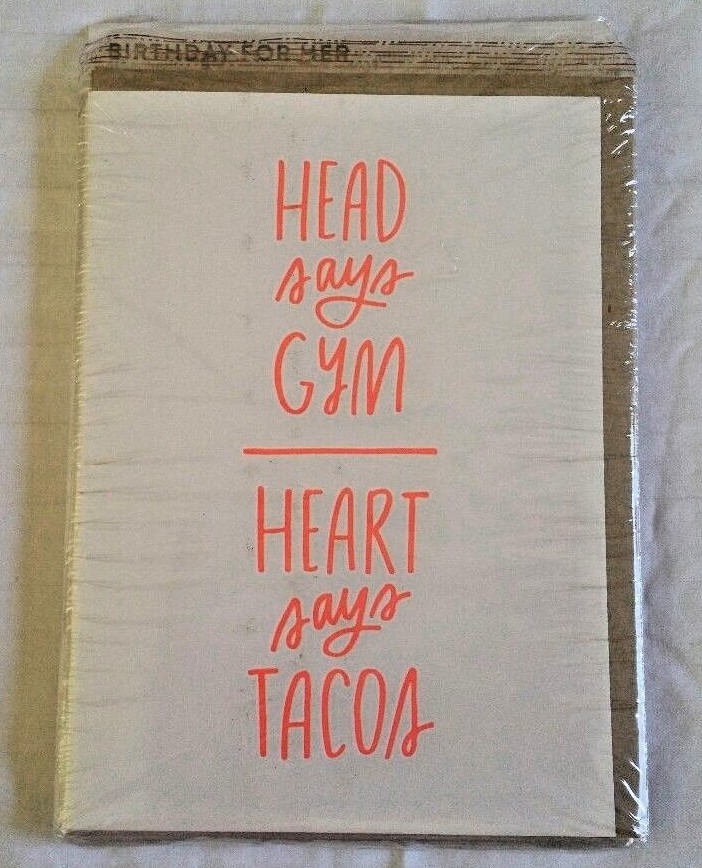 BIRTHDAY FOR HER
HEAD
says
GYM
HEART
says
TACOS